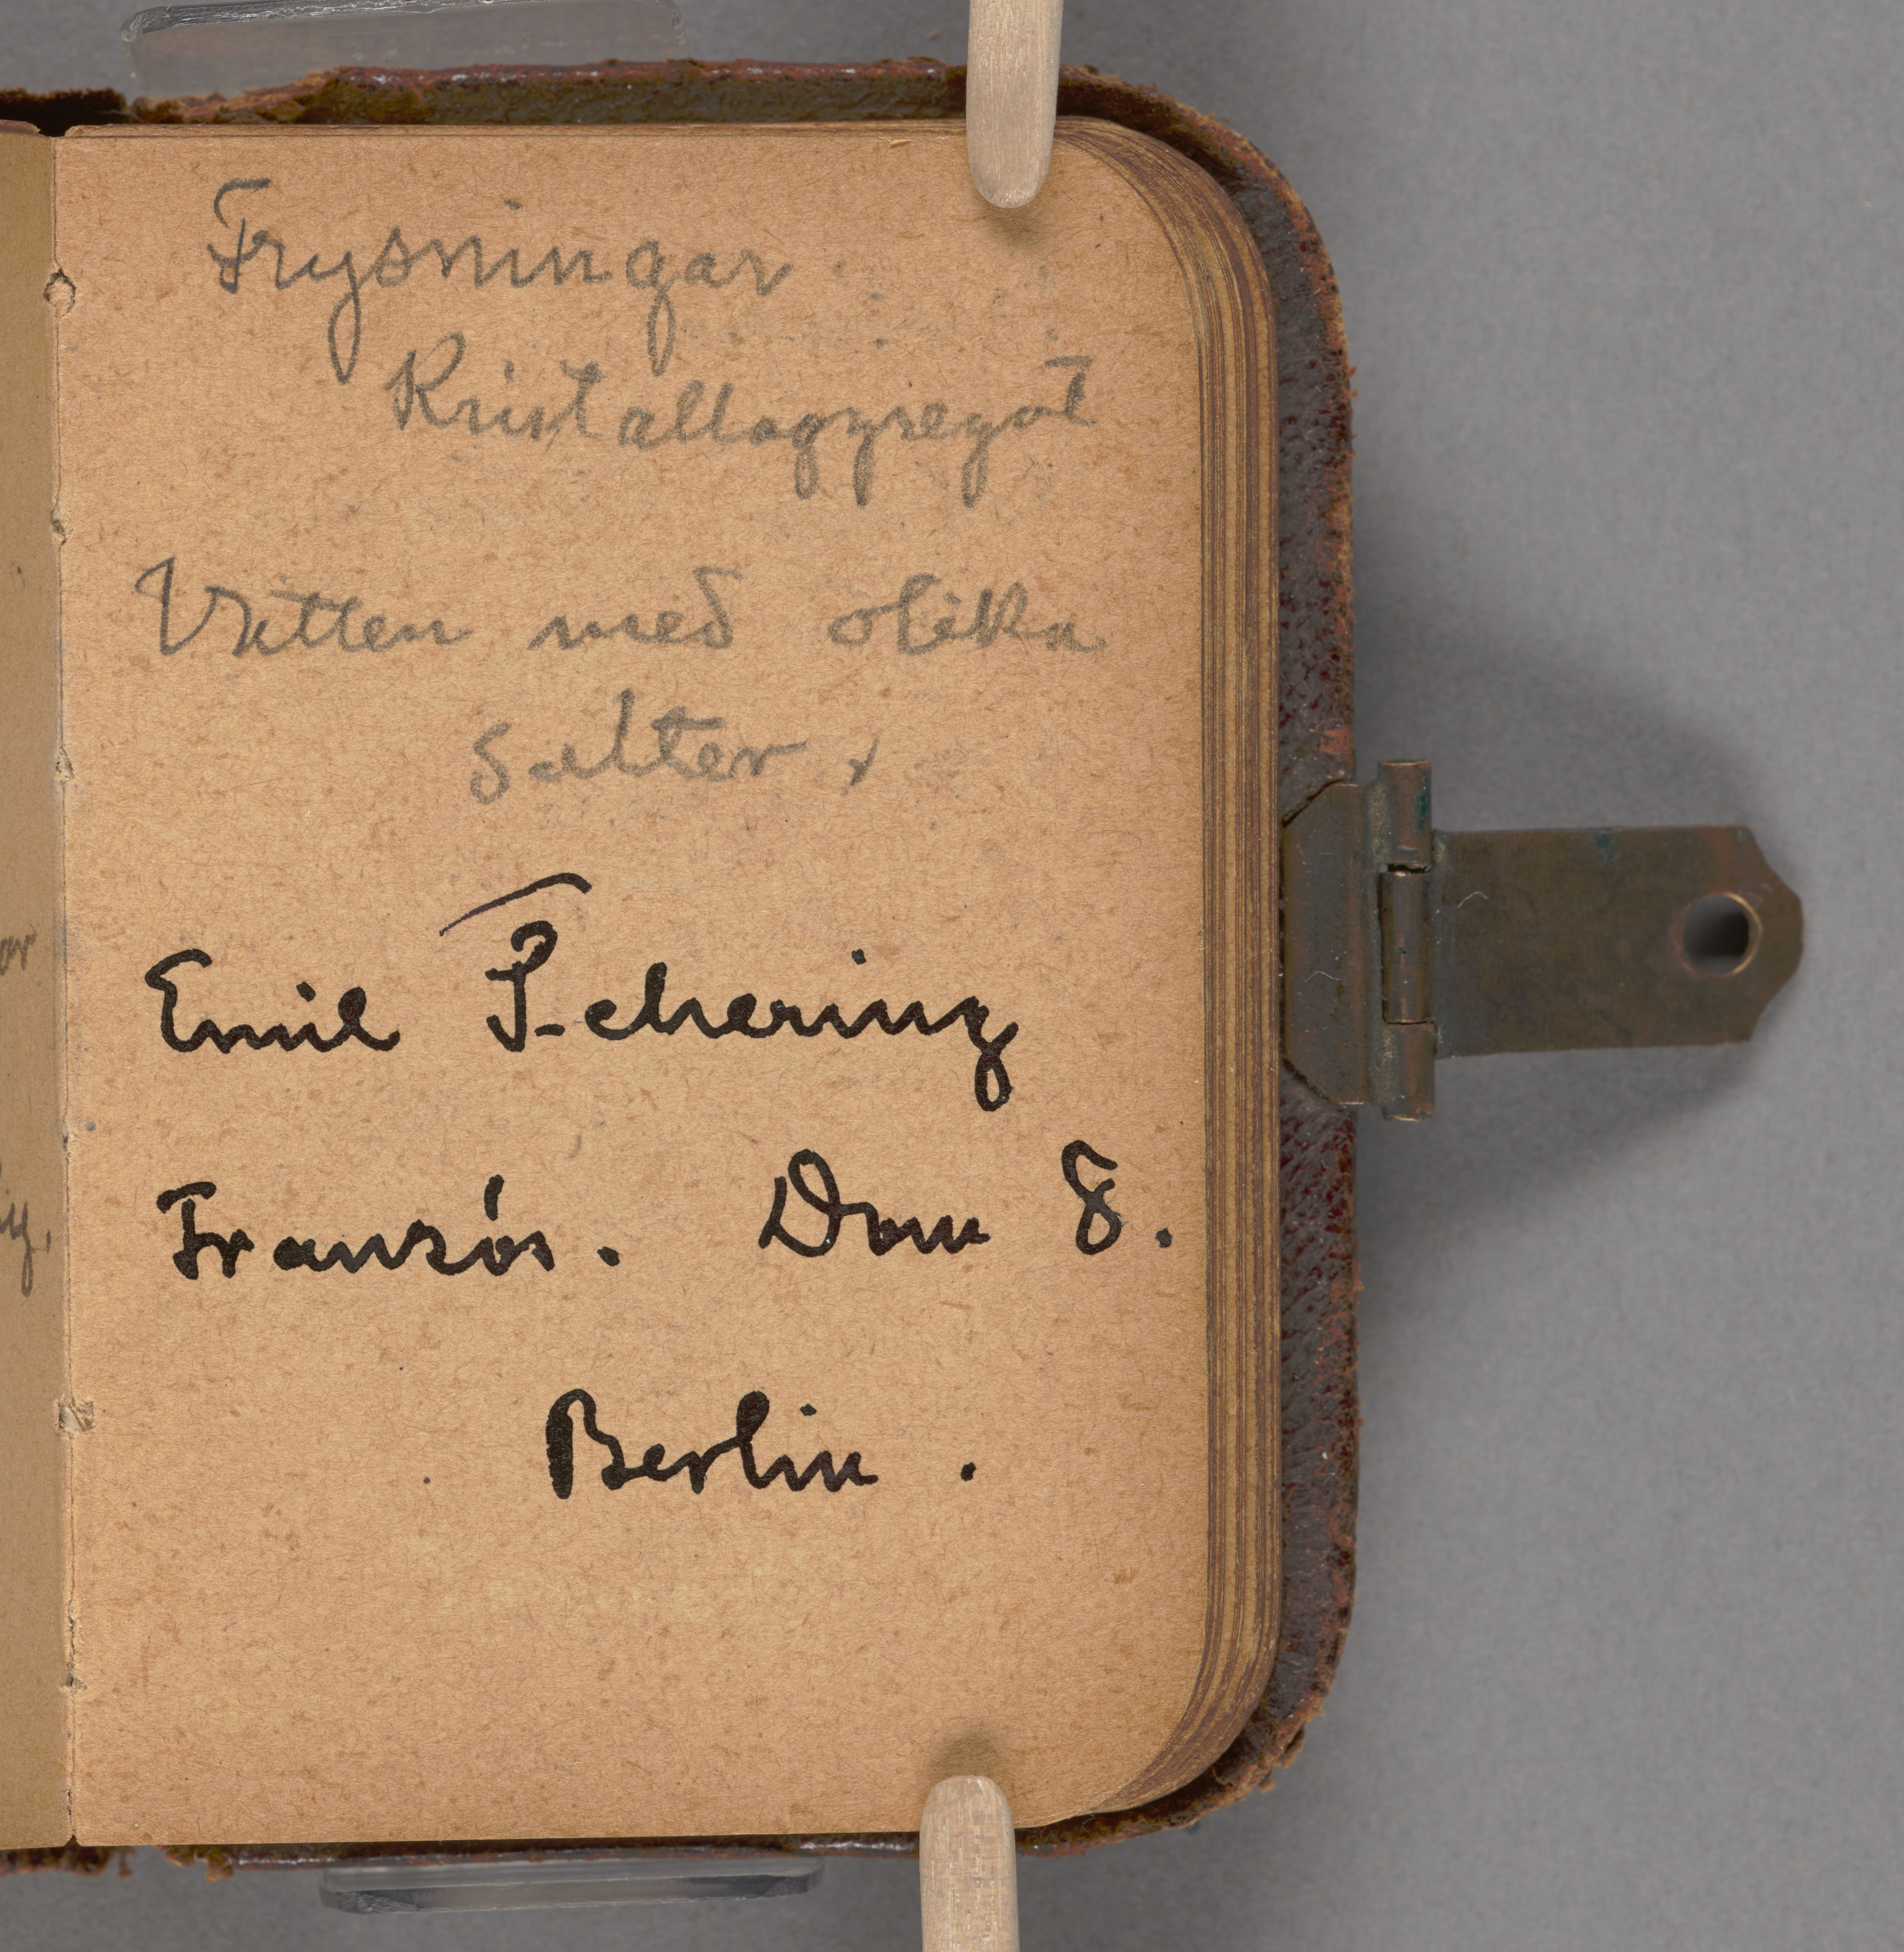 Frysningar
Kristallaggregat
Vatten med olika
Salter.
Emil Schering
Französ. Dom 8.
Berlin.